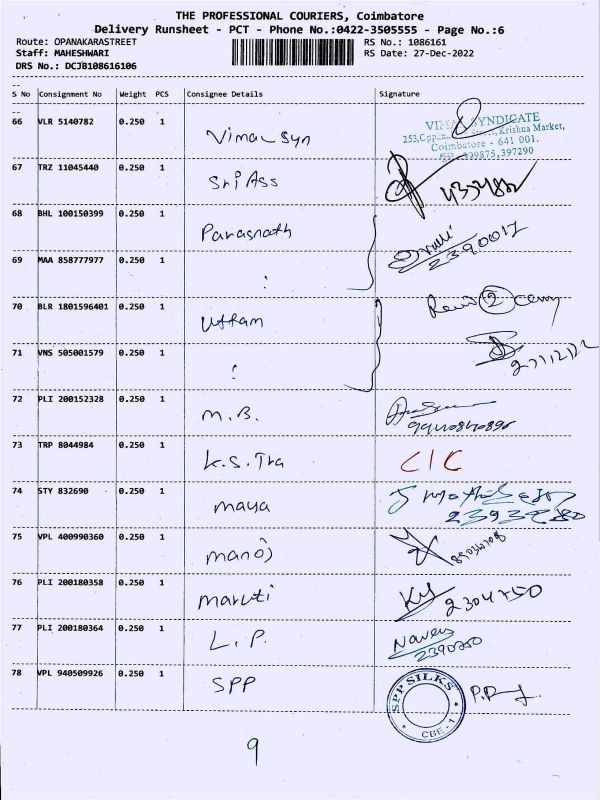 THE PROFESSIONAL COURIERS, Coimbatore
Delivery Runsheet - PCT - Phone No.:0422-3505555 - Page No.:6
Route: OPANAKARASTREET
Staff: MAHESHWARI
DRS No.: DCJB108616106
RS No.: 1086161
RS Date: 27-Dec-2022
S No Consignment No Weight PCS Consignee Details Signature
66 VLR 5140782 0.250 1 Vimal Syn
VIMAL SYNDICATE
Krishna Market,
Coimbatore - 641 001.
397290
67 TRZ 11045440 0.250 1 Sri Ass
68 BHL 100150399 0.250 1 Parasnath
2390017
69 MAA 858777977 0.250 1 :
70 BLR 1801596401 0.250 1 Uttam
2
71 VNS 505001579 0.250 1 :
72 PLI 200152328 0.250 1 M.B.
73 TRP 8044984 0.250 1 K.S. Tra CIC
74 STY 832690 0.250 1 Maya
75 VPL 400990360 0.250 1 Manoj
76 PLI 200180358 0.250 1 Maruti
77 PLI 200180364 0.250 1 L.P. Naveen
2390250
78 VPL 940509926 0.250 1 SPP
SPP SILKS
CBE - 1
9